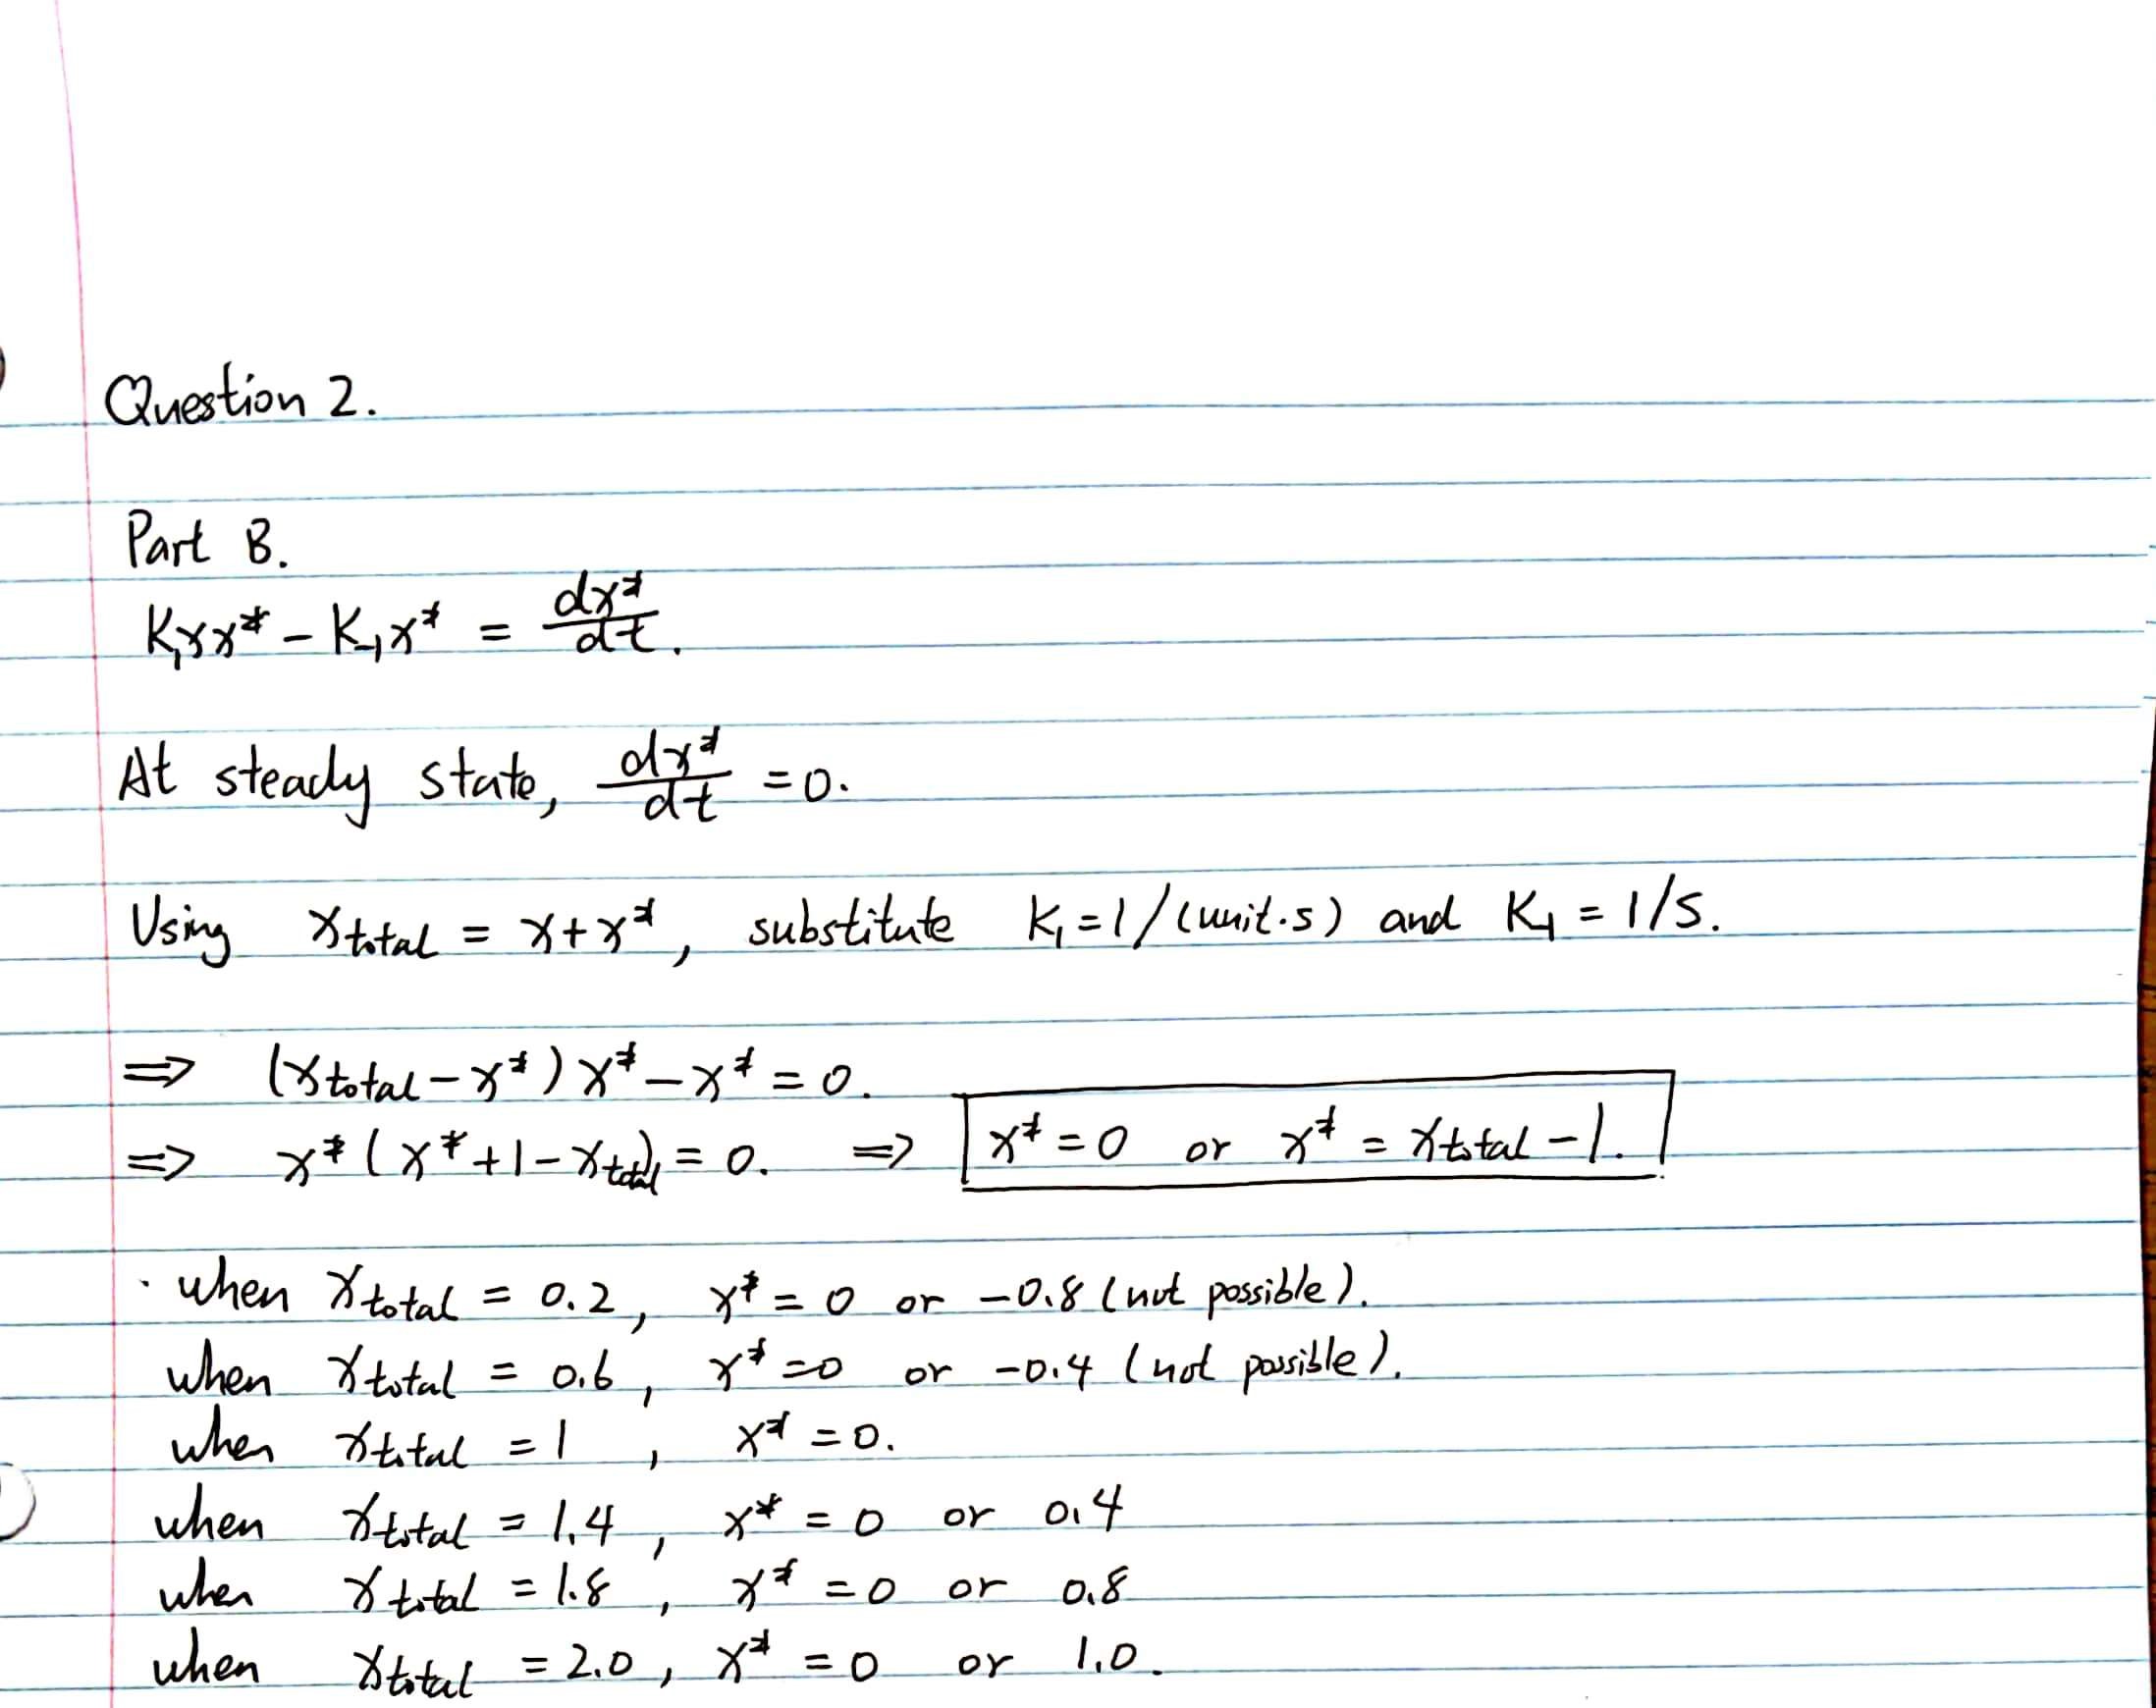 Question 2.
Part B.
K₁xx* − K₋₁x* = dx*/dt.
At steady state, dx*/dt = 0.
Using xtotal = x + x*, substitute K₁ = 1/(unit·s) and K₋₁ = 1/s.
⇒ (xtotal − x*) x* − x* = 0.
⇒ x* (x* + 1 − xtotal) = 0. ⇒ x* = 0 or x* = xtotal − 1.
· when xtotal = 0.2, x* = 0 or −0.8 (not possible).
when xtotal = 0.6, x* = 0 or −0.4 (not possible).
when xtotal = 1, x* = 0.
when xtotal = 1.4, x* = 0 or 0.4
when xtotal = 1.8, x* = 0 or 0.8
when xtotal = 2.0, x* = 0 or 1.0.